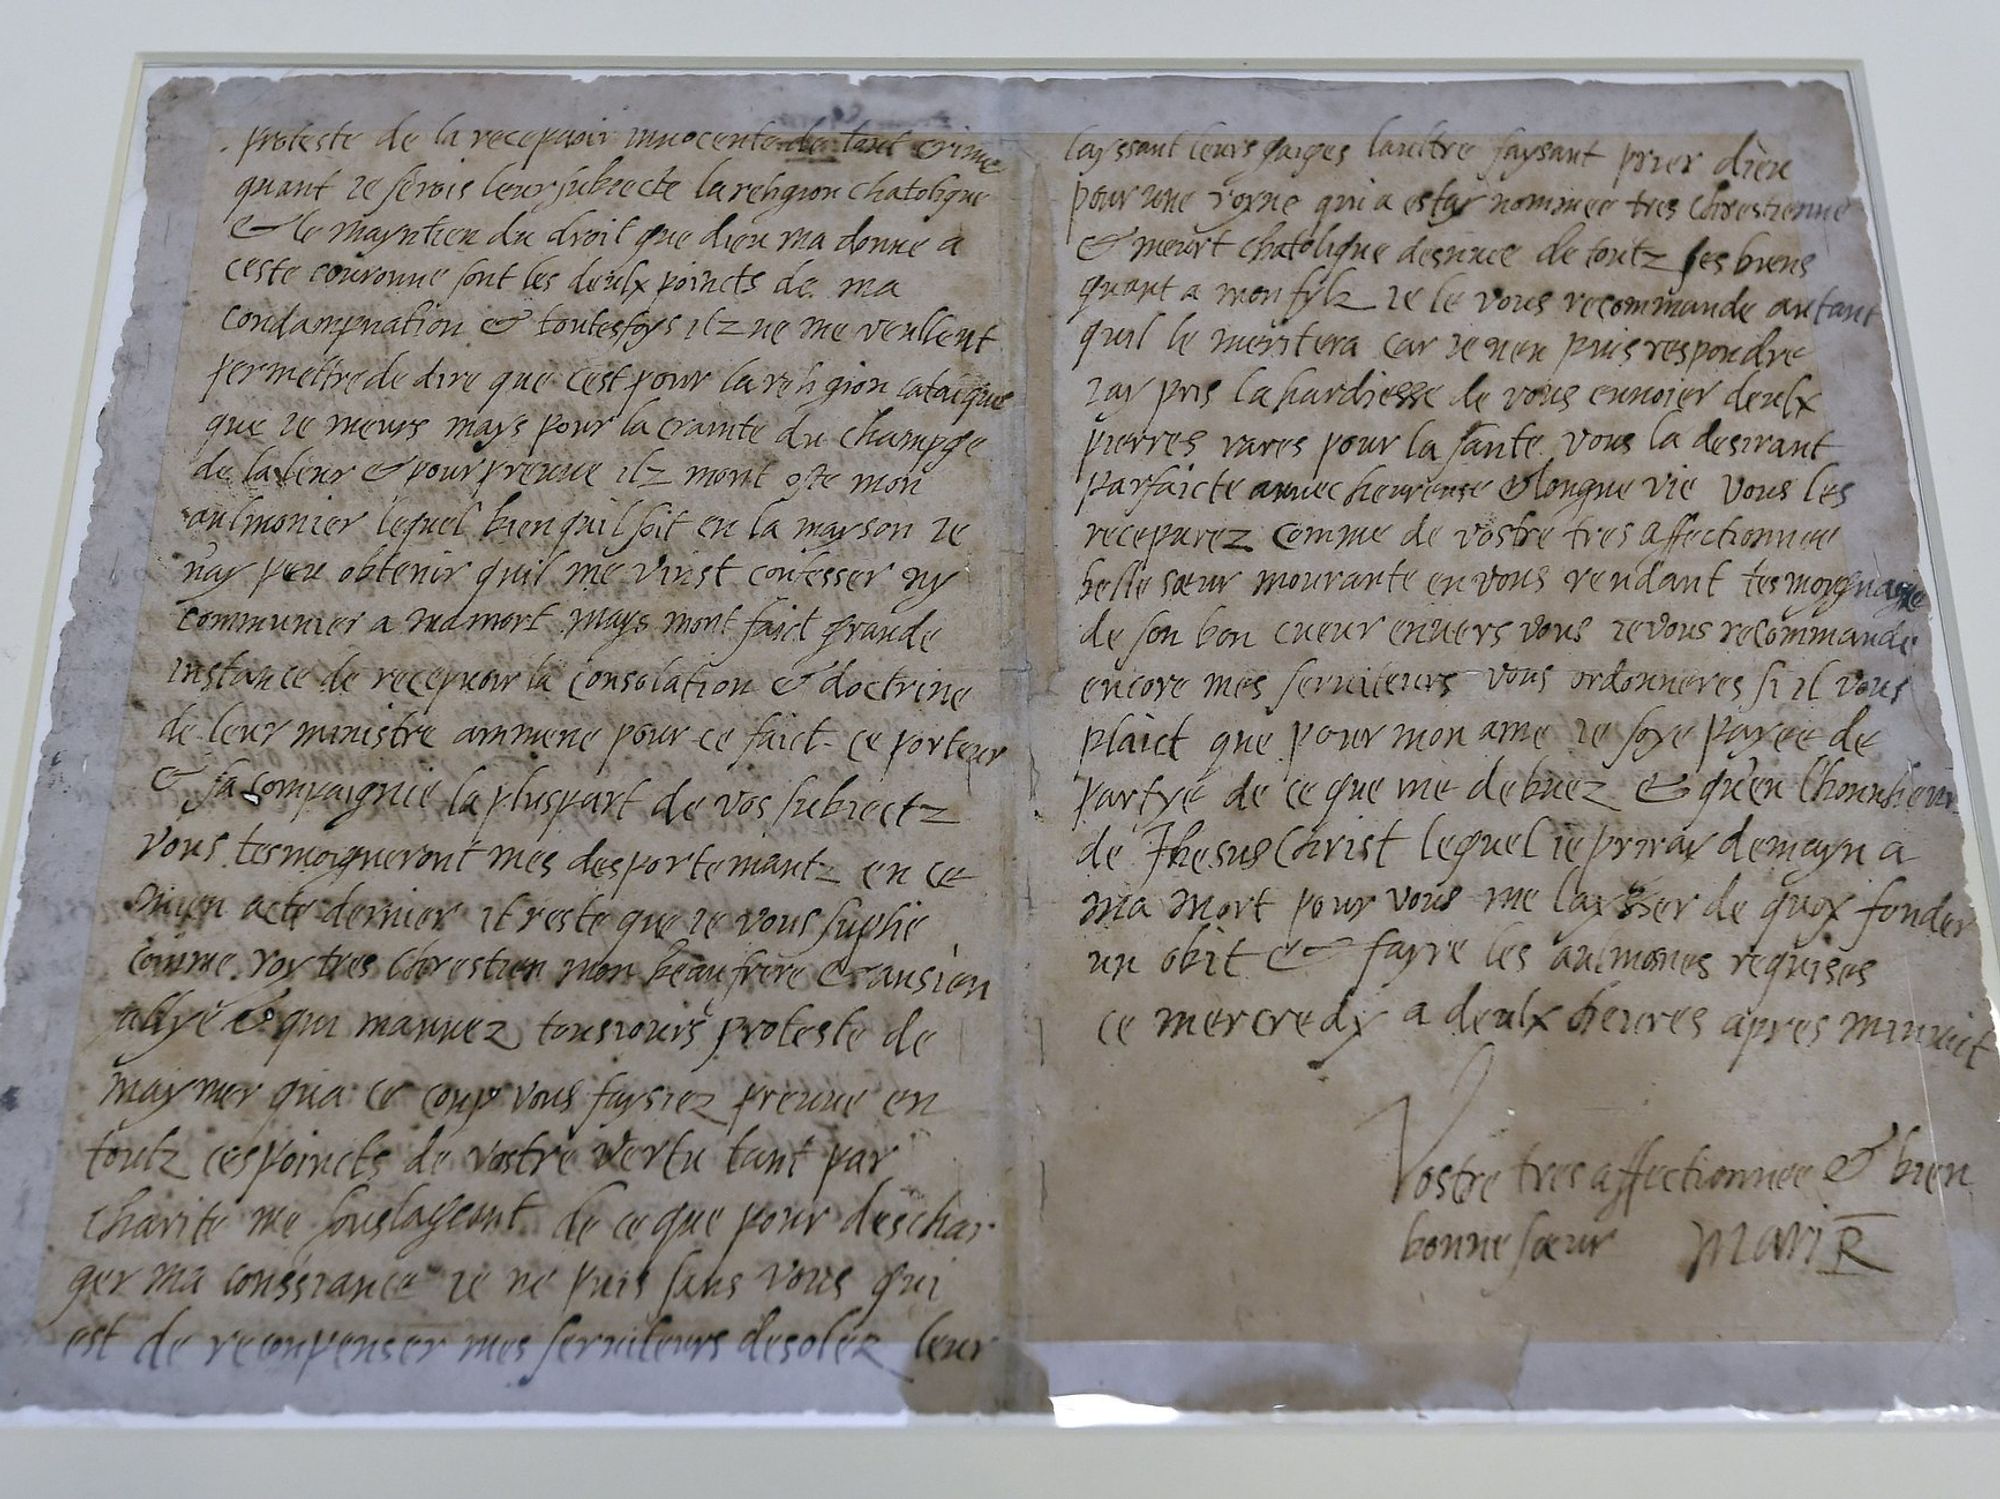 proteste de la recepuoir innocente de tout crime
quant ie serois leur subiecte la religion chatolique
& le mayntien du droit que dieu ma donne a
ceste couronne sont les deulx poincts de ma
condampnation & toutesfoys ilz ne me veullent
permettre de dire que cest pour la religion catolique
que ie meurs mays pour la crainte du champge
de la leur & pour preuue ilz mont oste mon
aulmonier lequel bien quil soit en la mayson ie
nay peu obtenir quil me vinst confesser ny
communier a ma mort mays mont faict grande
instance de recepuoir la consolation & doctrine
de leur ministre ammene pour ce faict ce porteur
& sa compaignie la pluspart de vos subiectz
vous tesmoigneront mes desportemantz en ce
mien acte dernier il reste que ie vous suplie
comme roy tres chrestien mon beau frere & ansien
allye & qui mauuez tousiours proteste de
maymer qua ce coup vous faysiez preuue en
toutz ces poincts de vostre vertu tant par
charite me soulageant de ce que pour deschar
ger ma conssiance ie ne puis sans vous qui
est de recompenser mes seruiteurs desolez leur
layssant leurs gaiges laultre faysant prier dieu
pour une royne qui a estay nommee tres chrestienne
& meurt chatolique desnuee de toutz ses biens
quant a mon fylz ie le vous recommande autant
quil le meritera car ie nen puis respondre
iay pris la hardiesse de vous enuoier deulx
pierres rares pour la sante vous la desirant
parfaicte auuec heureuse & longue vie vous les
recepurez comme de vostre tres affectionnee
belle sœur mourante en vous rendant tesmoygnage
de son bon cueur enuers vous ie vous recommande
encore mes seruiteurs vous ordonneres si il vous
plaict que pour mon ame ie soye payee de
partye de ce que me debuez & qu'en lhonnheur
de Jhesus Christ lequel ie priray demayn a
ma mort pour vous me laysser de quoy fonder
un obit & fayre les aulmones requises
ce mercredy a deulx heures apres minuict
Vostre tres affectionnee & bien
bonne sœur Mari R